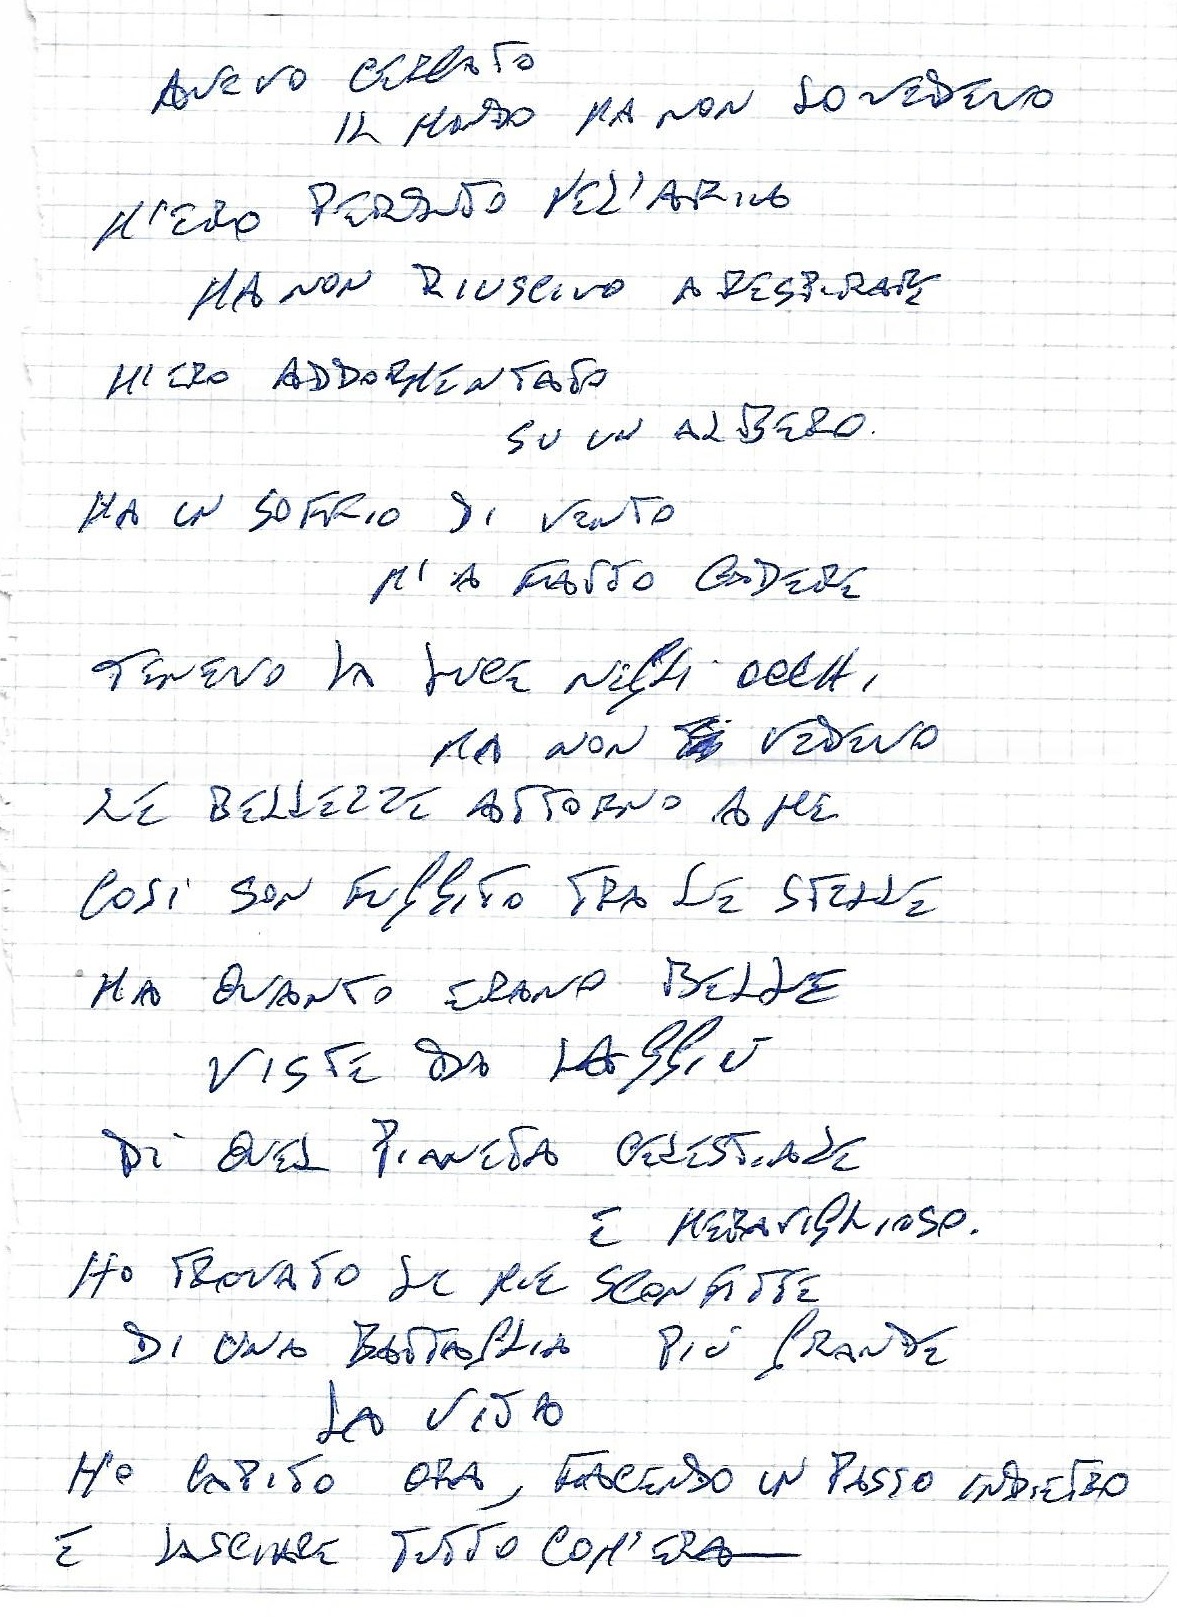 AVEVO CERCATO
IL MONDO MA NON LO VEDEVO
M'ERO PERDUTO NEL'ARIA
MA NON RIUSCIVO A RESPIRARE
M'ERO ADDORMENTATO
SU UN ALBERO.
MA UN SOFFIO DI VENTO
M'A FATTO CADERE
TENEVO LA LUCE NEGLI OCCHI,
MA NON VEDEVO
LE BELLEZZE ATTORNO A ME
COSI SON FUGGITO TRA LE STELLE
MA QUANTO ERANO BELLE
VISTE DA LAGGIÙ
DI QUEL PIANETA CELESTIALE
E MERAVIGLIOSO.
HO TROVATO LE MIE SCONFITTE
DI UNA BATTAGLIA PIÙ GRANDE
LA VITA
HO CAPITO ORA, FACENDO UN PASSO INDIETRO
E LASCIARE TUTTO COM'ERA